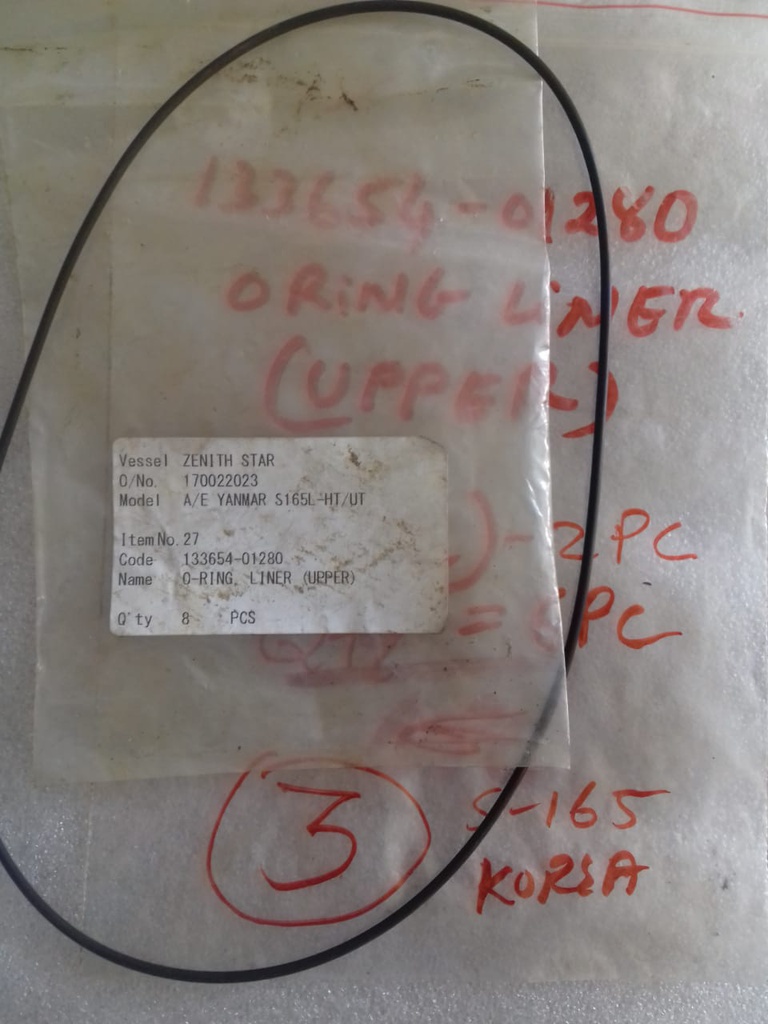 133654-01280
O RiNG LiNER
(UPPER)
Vessel ZENITH STAR
O/No. 170022023
Model A/E YANMAR S165L-HT/UT
Item No. 27
Code 133654-01280
Name O-RING, LINER (UPPER)
Q'ty 8 PCS
) - 2 PC
= PC
3
S-165
KOREA